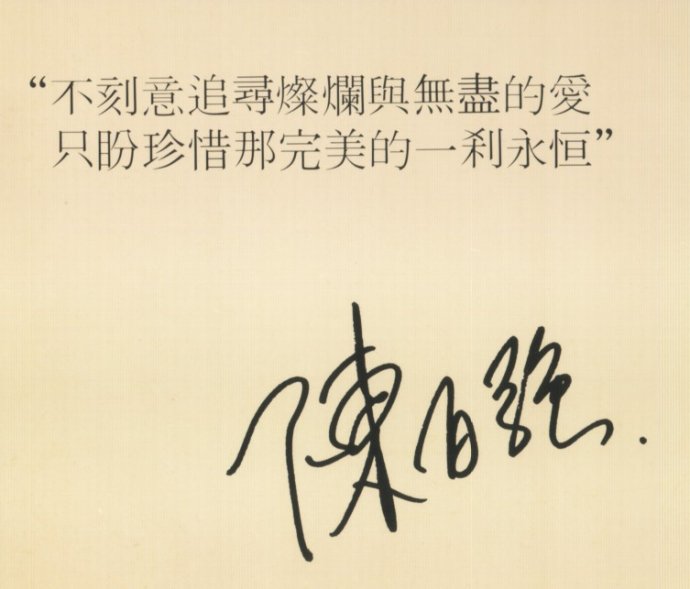 “不刻意追尋燦爛與無盡的愛
只盼珍惜那完美的一刹永恒”
陳百強.